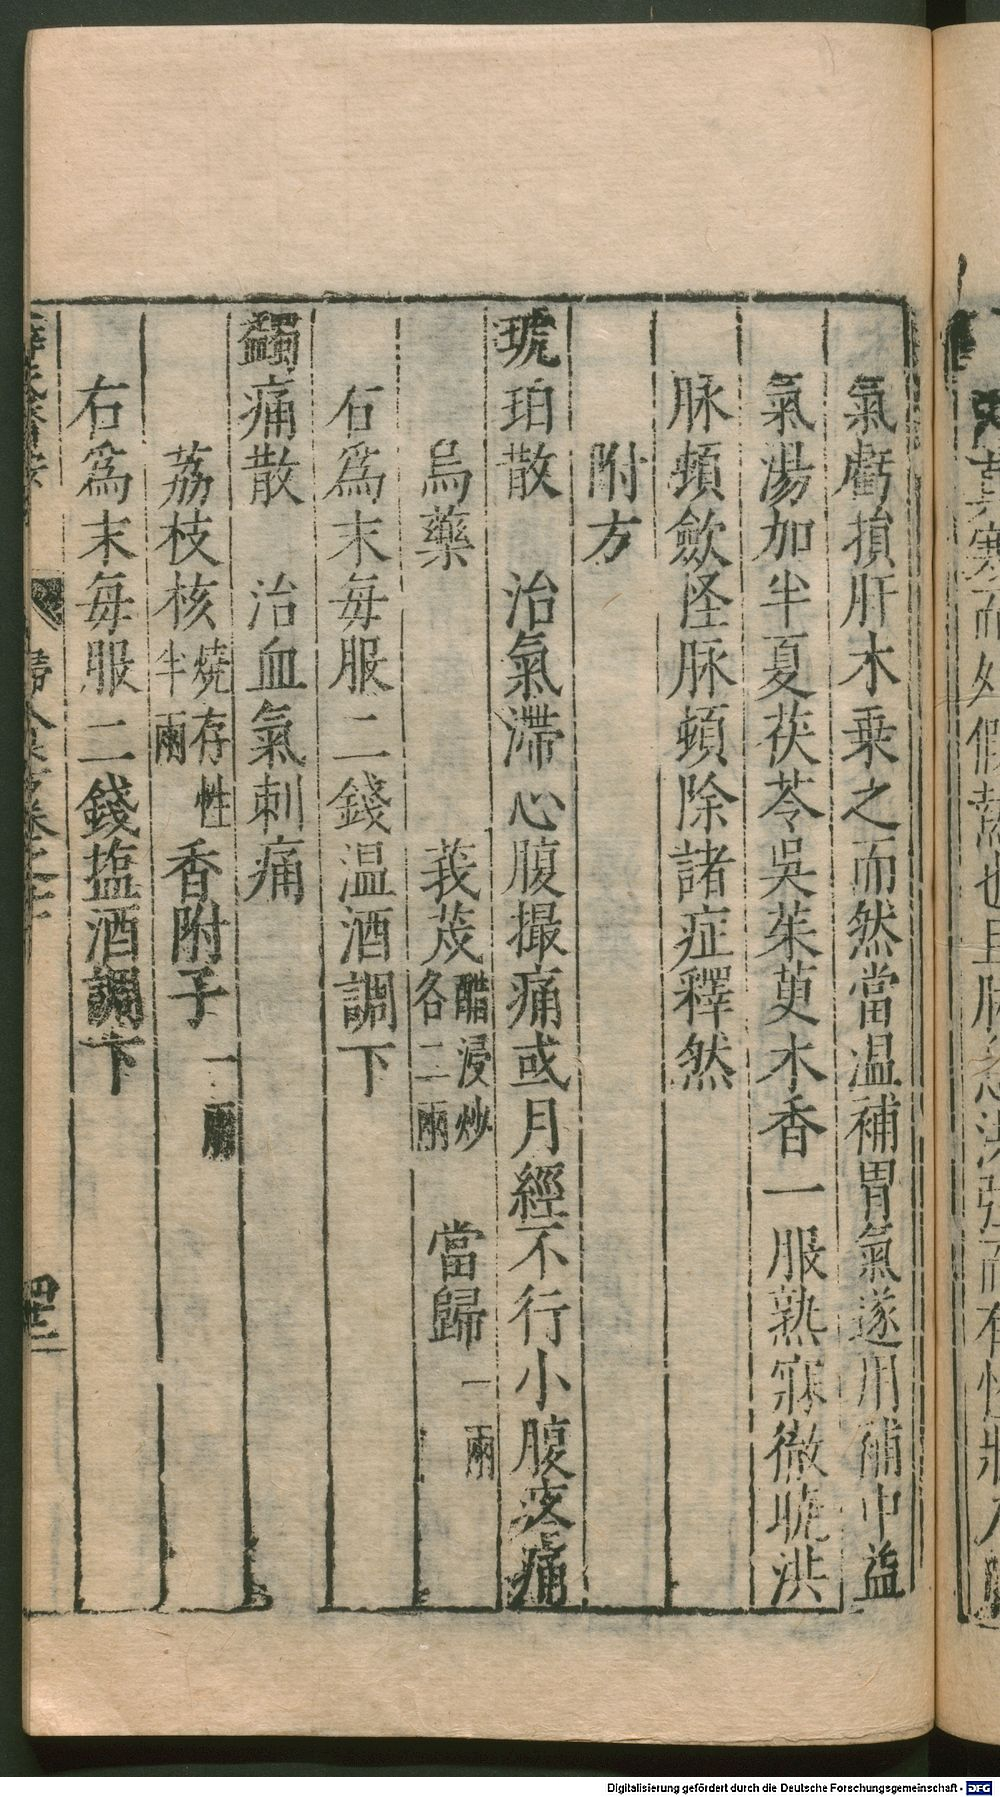 氣虧損肝木乗之而然當温補胃氣遂用補中益
氣湯加半夏茯苓吳茱萸木香一服熟寐微覺洪
脉頓歛怪脉頓除諸症釋然
附方
琥珀散　治氣滯心腹撮痛或月經不行小腹疼痛
烏藥　莪茂醋浸炒各二兩　當歸一兩
右爲末每服二錢温酒調下
蠲痛散　治血氣刺痛
荔枝核燒存性半兩　香附子一兩
右爲末每服二錢塩酒調下
Digitalisierung gefördert durch die Deutsche Forschungsgemeinschaft - DFG